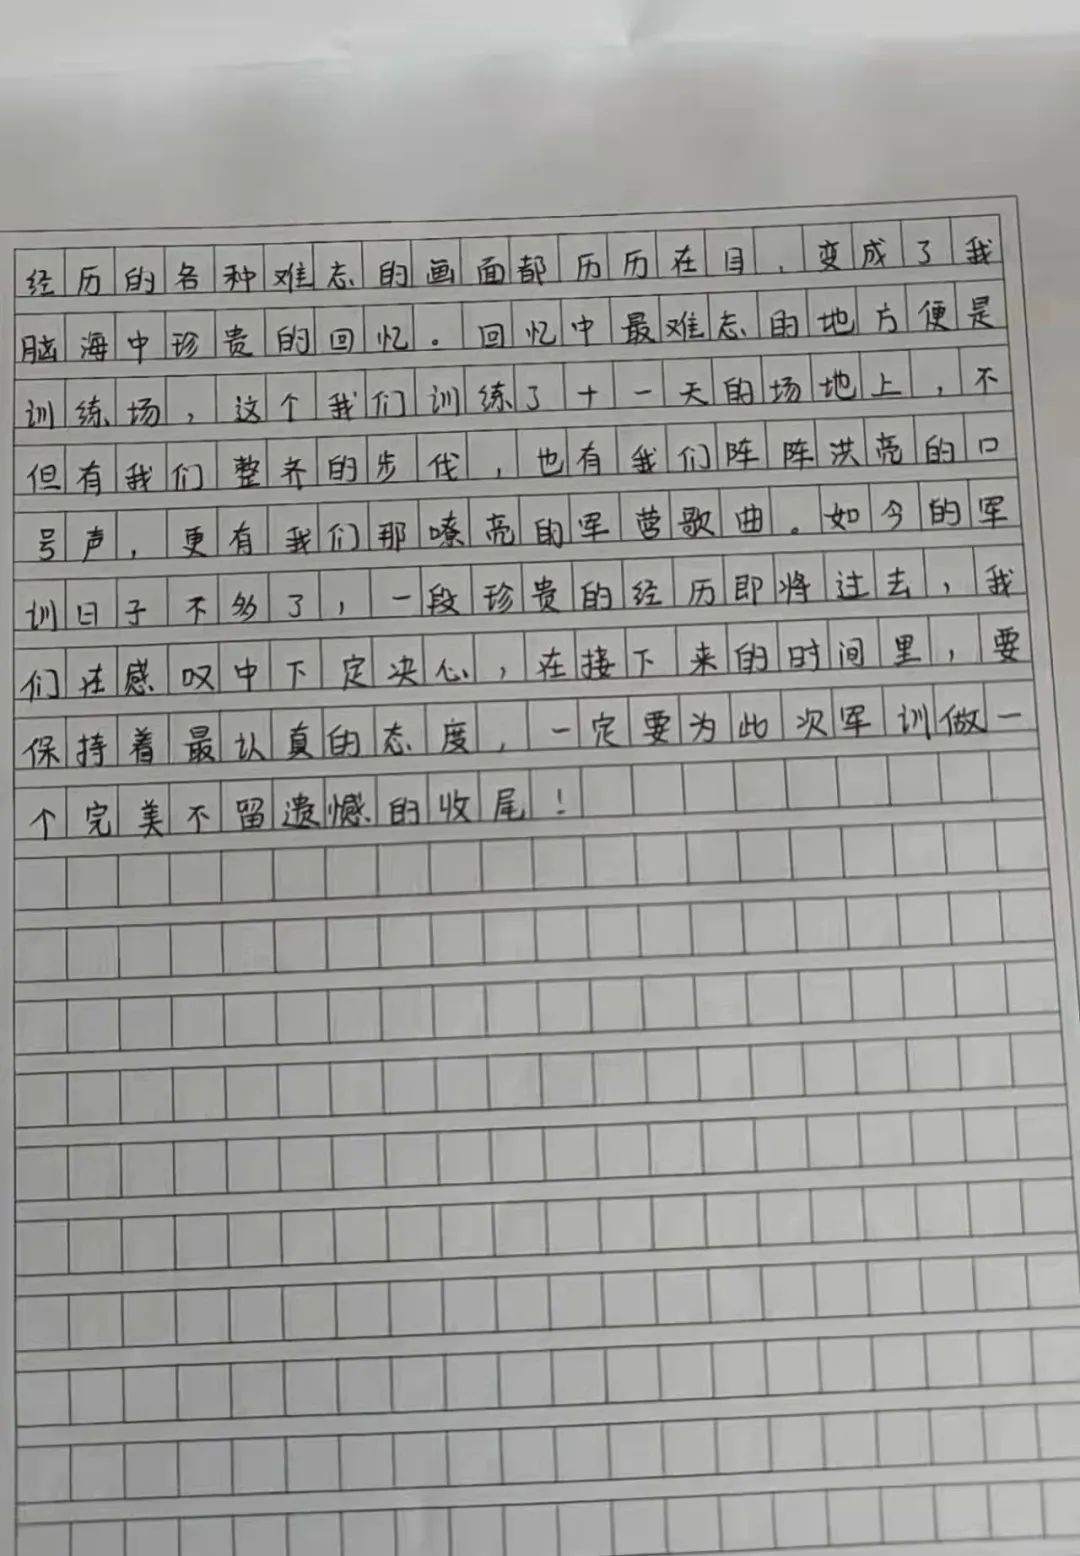 经历的各种难忘的画面都历历在目，变成了我
脑海中珍贵的回忆。回忆中最难忘的地方便是
训练场，这个我们训练了十一天的场地上，不
但有我们整齐的步伐，也有我们阵阵洪亮的口
号声，更有我们那嘹亮的军营歌曲。如今的军
训日子不多了，一段珍贵的经历即将过去，我
们在感叹中下定决心，在接下来的时间里，要
保持着最认真的态度，一定要为此次军训做一
个完美不留遗憾的收尾！